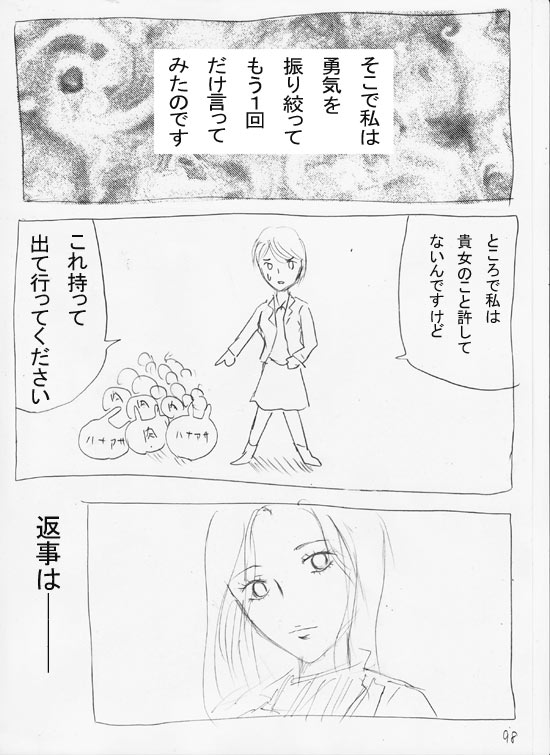 そこで私は
勇気を
振り絞って
もう1回
だけ言って
みたのです
ところで私は
貴女のこと許して
ないんですけど
これ持って
出て行ってください
肉
肉
肉
肉
ハナアサ
ハナアサ
返事は――
98